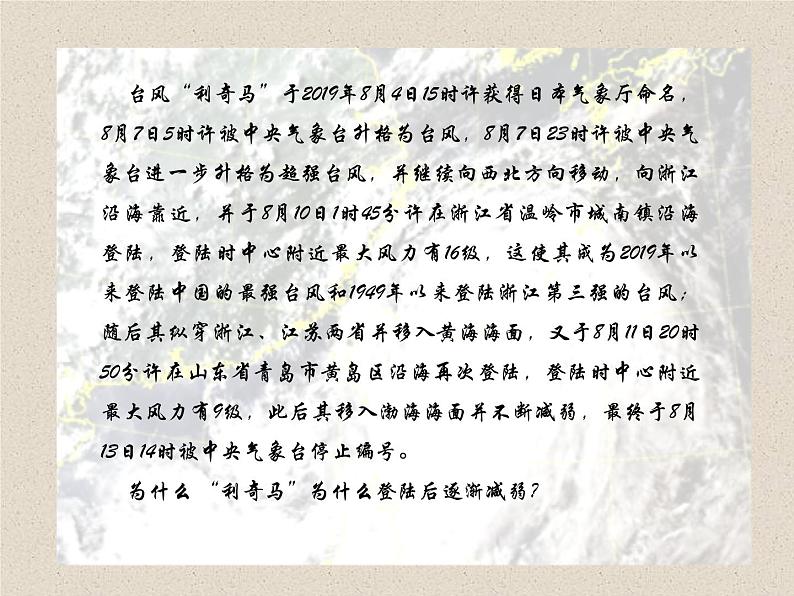 台风“利奇马”于2019年8月4日15时许获得日本气象厅命名，
8月7日5时许被中央气象台升格为台风，8月7日23时许被中央气
象台进一步升格为超强台风，并继续向西北方向移动，向浙江
沿海靠近，并于8月10日1时45分许在浙江省温岭市城南镇沿海
登陆，登陆时中心附近最大风力有16级，这使其成为2019年以
来登陆中国的最强台风和1949年以来登陆浙江第三强的台风；
随后其纵穿浙江、江苏两省并移入黄海海面，又于8月11日20时
50分许在山东省青岛市黄岛区沿海再次登陆，登陆时中心附近
最大风力有9级，此后其移入渤海海面并不断减弱，最终于8月
13日14时被中央气象台停止编号。
为什么“利奇马”为什么登陆后逐渐减弱？